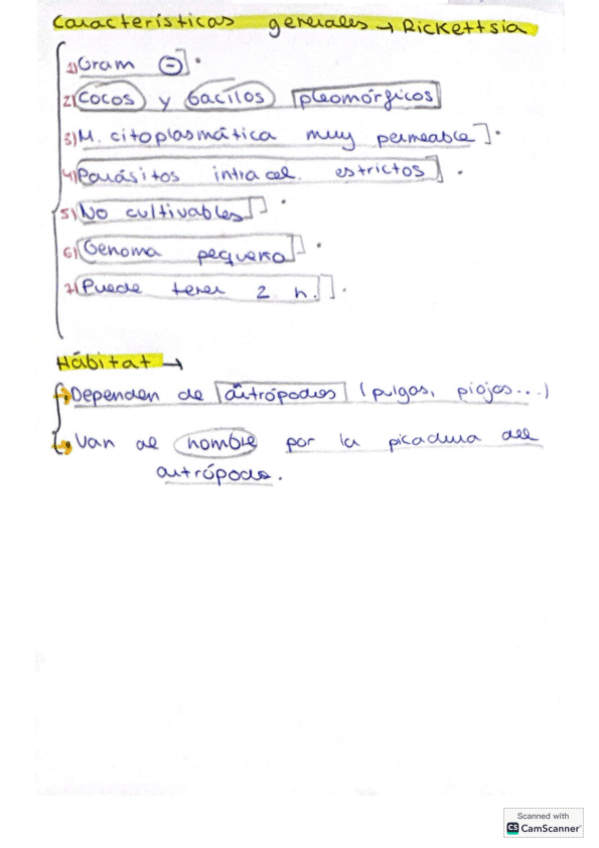 Características generales → Rickettsia
1) Gram ⊖.
2) Cocos y bacilos pleomórficos
3) M. citoplasmática muy permeable.
4) Parásitos intracel. estrictos.
5) No cultivables.
6) Genoma pequeño.
7) Puede tener 2 h.
Hábitat →
Dependen de antrópodos (pulgas, piojos...)
Van al hombre por la picadura del
artrópodo.
Scanned with
CS CamScanner